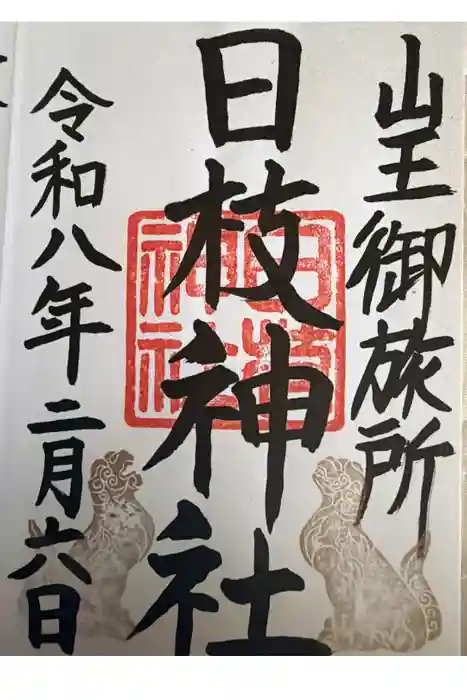 山王御旅所
日枝神社
日枝神社
令和八年二月六日